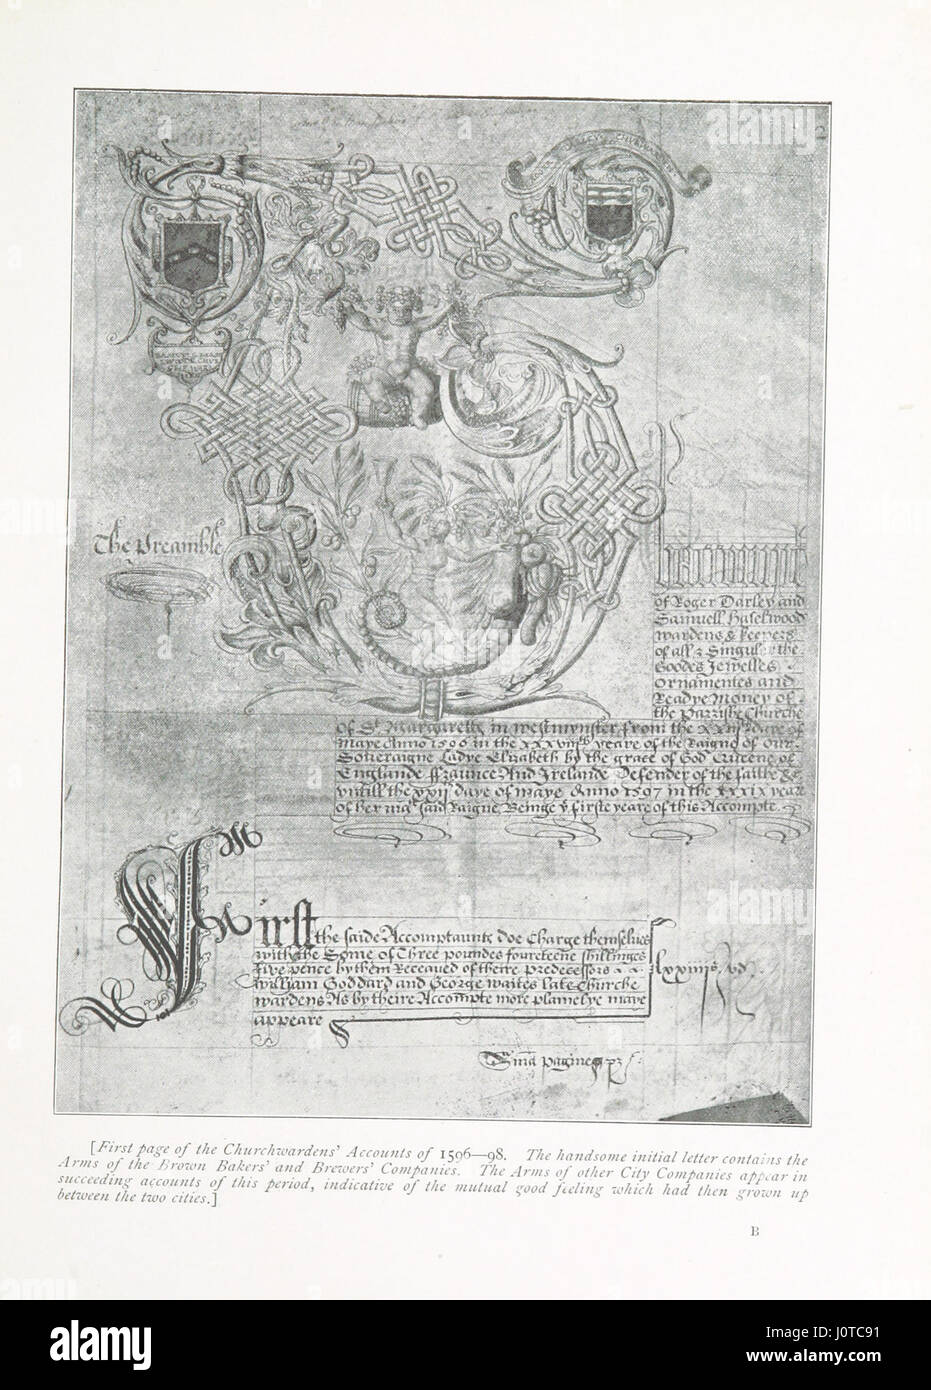 The Preamble
of Roger Darley and
Samuell Haselwood
wardens & keepers
of all & Singuler the
Goodes Jewelles
Ornamentes and
Readye Money of
the Parrishe Churche
of St Margaretts in westmynster from the xxiith daye of
Maye Anno 1596 in the xxxviiith yeare of the Raigne of our
Soveraigne Ladye Elizabeth by the grace of God Queene of
Englande ffraunce And Irelande Defender of the faithe &c
untill the xxii daye of maye Anno 1597 in the xxxix yeare
of her ma said Raigne Beinge ye firste yeare of this Accompte.
First the saide Accomptaunts doe Charge themselves
with the Some of Three poundes fourteene shillinges
five pence by them Receaued of theire predecessors
william Goddard and George waites late Churche
wardens As by theire Accompte more plainelye maye
appeare
lxxiiiis vd
[First page of the Churchwardens' Accounts of 1596—98. The handsome initial letter contains the
Arms of the Brown Bakers' and Brewers' Companies. The Arms of other City Companies appear in
succeeding accounts of this period, indicative of the mutual good feeling which had then grown up
between the two cities.]
B
alamy
Image ID: J0TC91
www.alamy.com